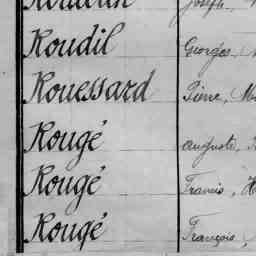 Roudil Georges,
Rouessard Pierre, M
Rougé auguste,
Rougé Francis, H
Rougé François,